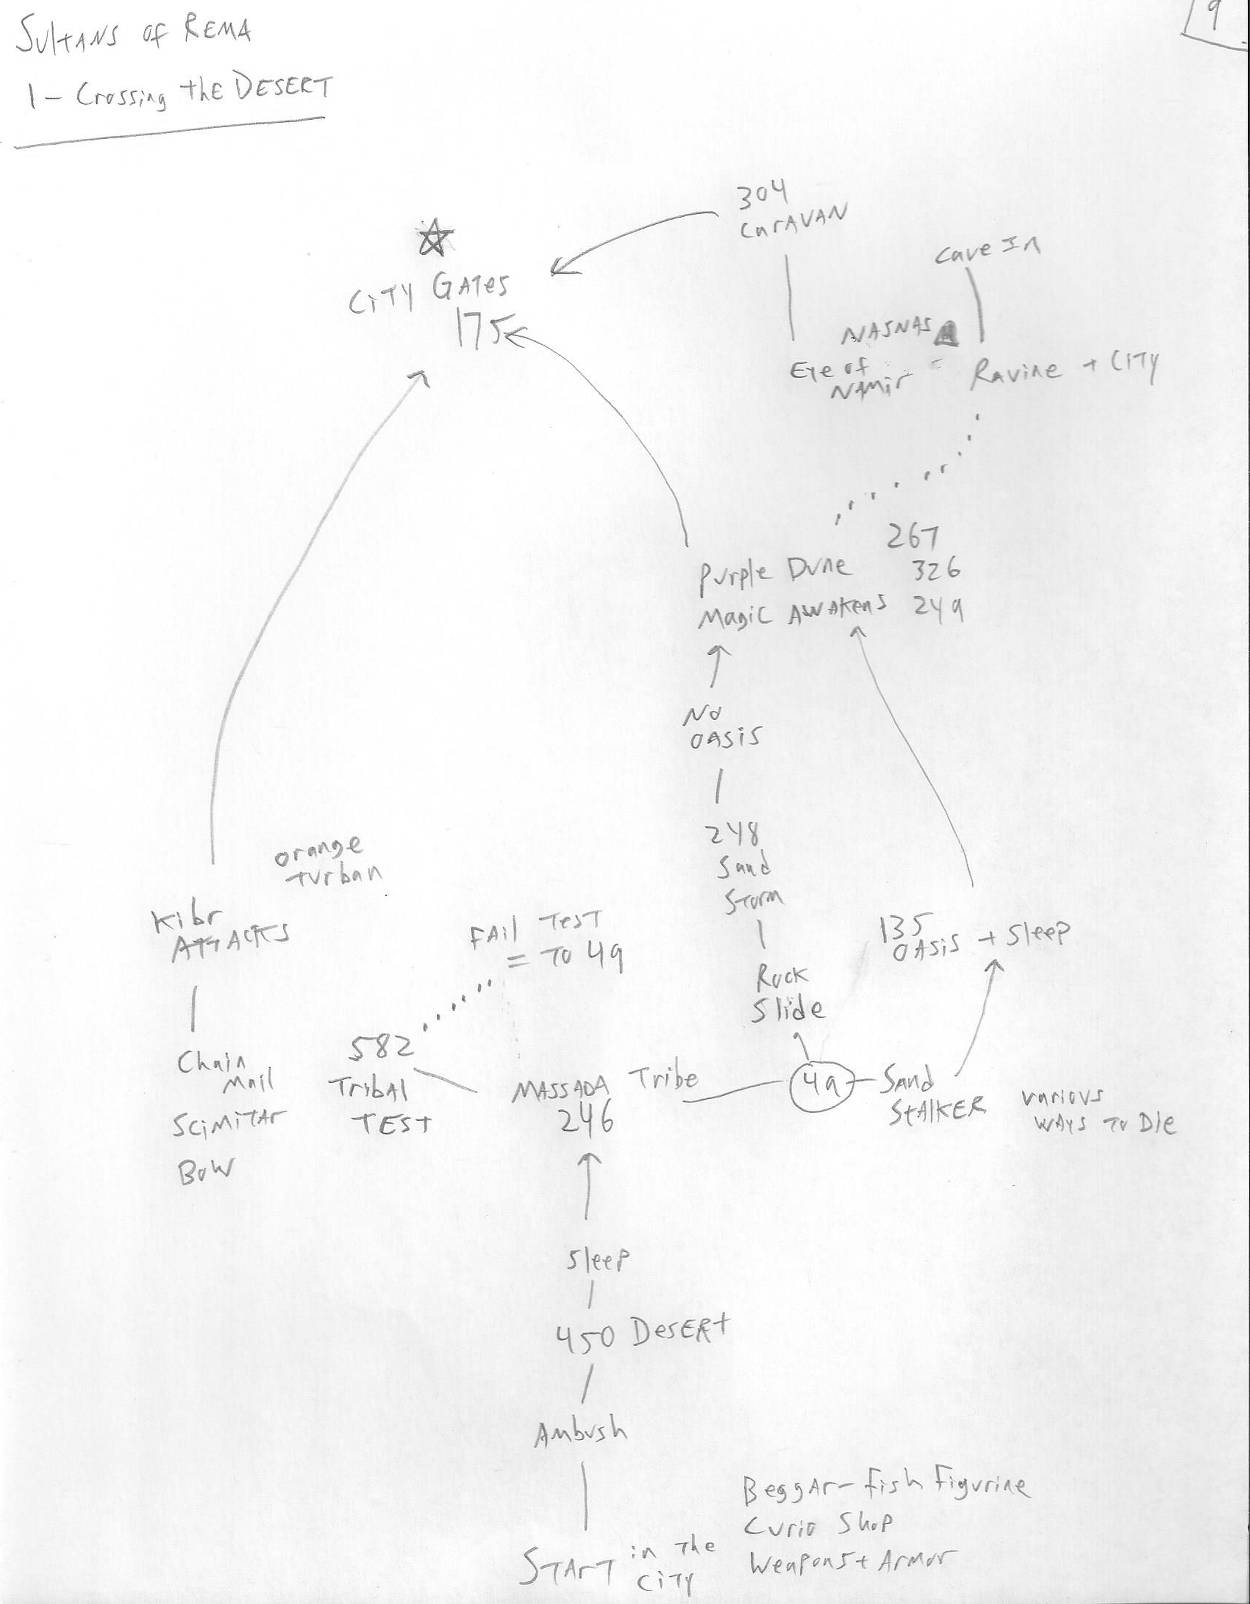 9
Sultans of Rema
1 - Crossing the Desert
304
Caravan
Cave In
City Gates
175
Nasnas
Eye of
Namir
Ravine + City
267
Purple Dune 326
Magic Awakens 249
No
Oasis
248
Sand
Storm
Orange
turban
Kibr
Attacks
Fail Test
= to 49
135
Oasis + Sleep
Rock
Slide
582
Tribal
Test
Chain
Mail
Scimitar
Bow
Massada Tribe
246
49
Sand
Stalker
Various
ways to Die
Sleep
450 Desert
Ambush
Start in the
City
Beggar - Fish Figurine
Curio Shop
Weapons + Armor